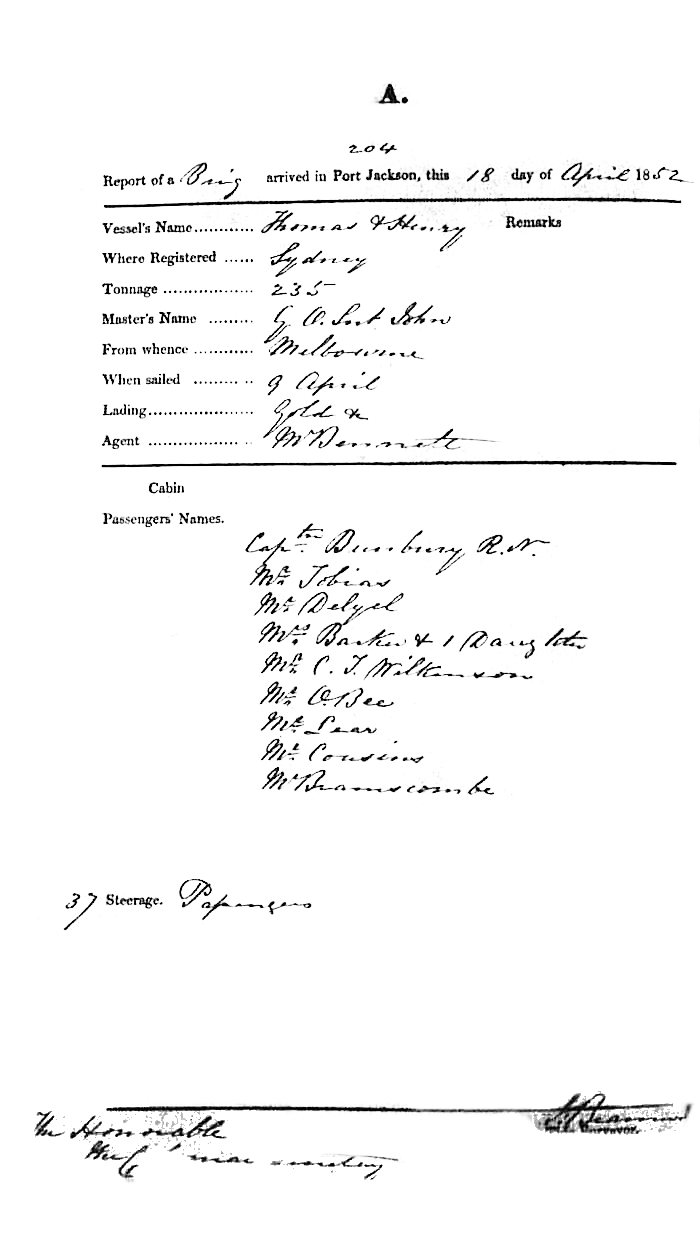 A.
204
Report of a Brig arrived in Port Jackson, this 18 day of April 1852
Vessel's Name............ Thomas & Henry Remarks
Where Registered ...... Sydney
Tonnage .................. 235
Master's Name ......... G O. Sut John
From whence ............ Melbourne
When sailed ......... .. 9 April
Lading..................... Gold &
Agent .................. .. Mr Bennett
Cabin
Passengers' Names.
Captn. Bunbury R.N.
Mr. Tobias
Mr.
Mrs. Barker & 1 Daughter
Mr. C. T. Wilkinson
Mr. O.Bee
Mr. Lear
Mr. Cousins
Mr Bramscombe
37 Steerage. Passengers
The Honorable
the secretary